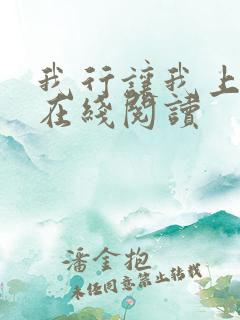 我行讓我上
在綫閱讀
潘金抱
未经同意禁止转载